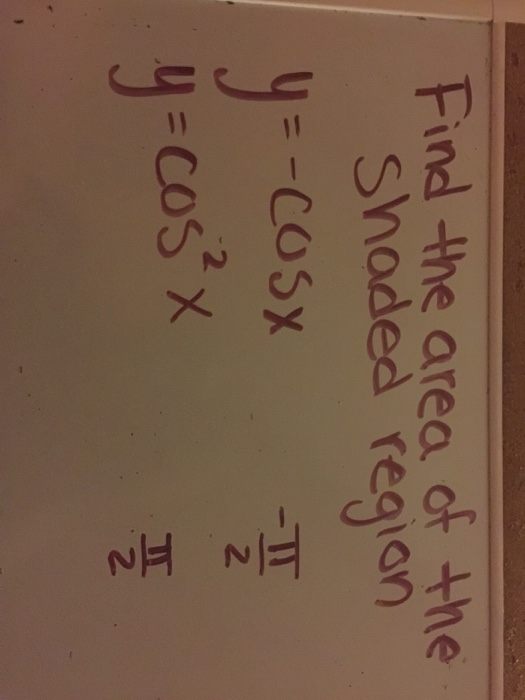 Find the area of the
shaded region
y = -cosx    -π/2
y = cos²x    π/2